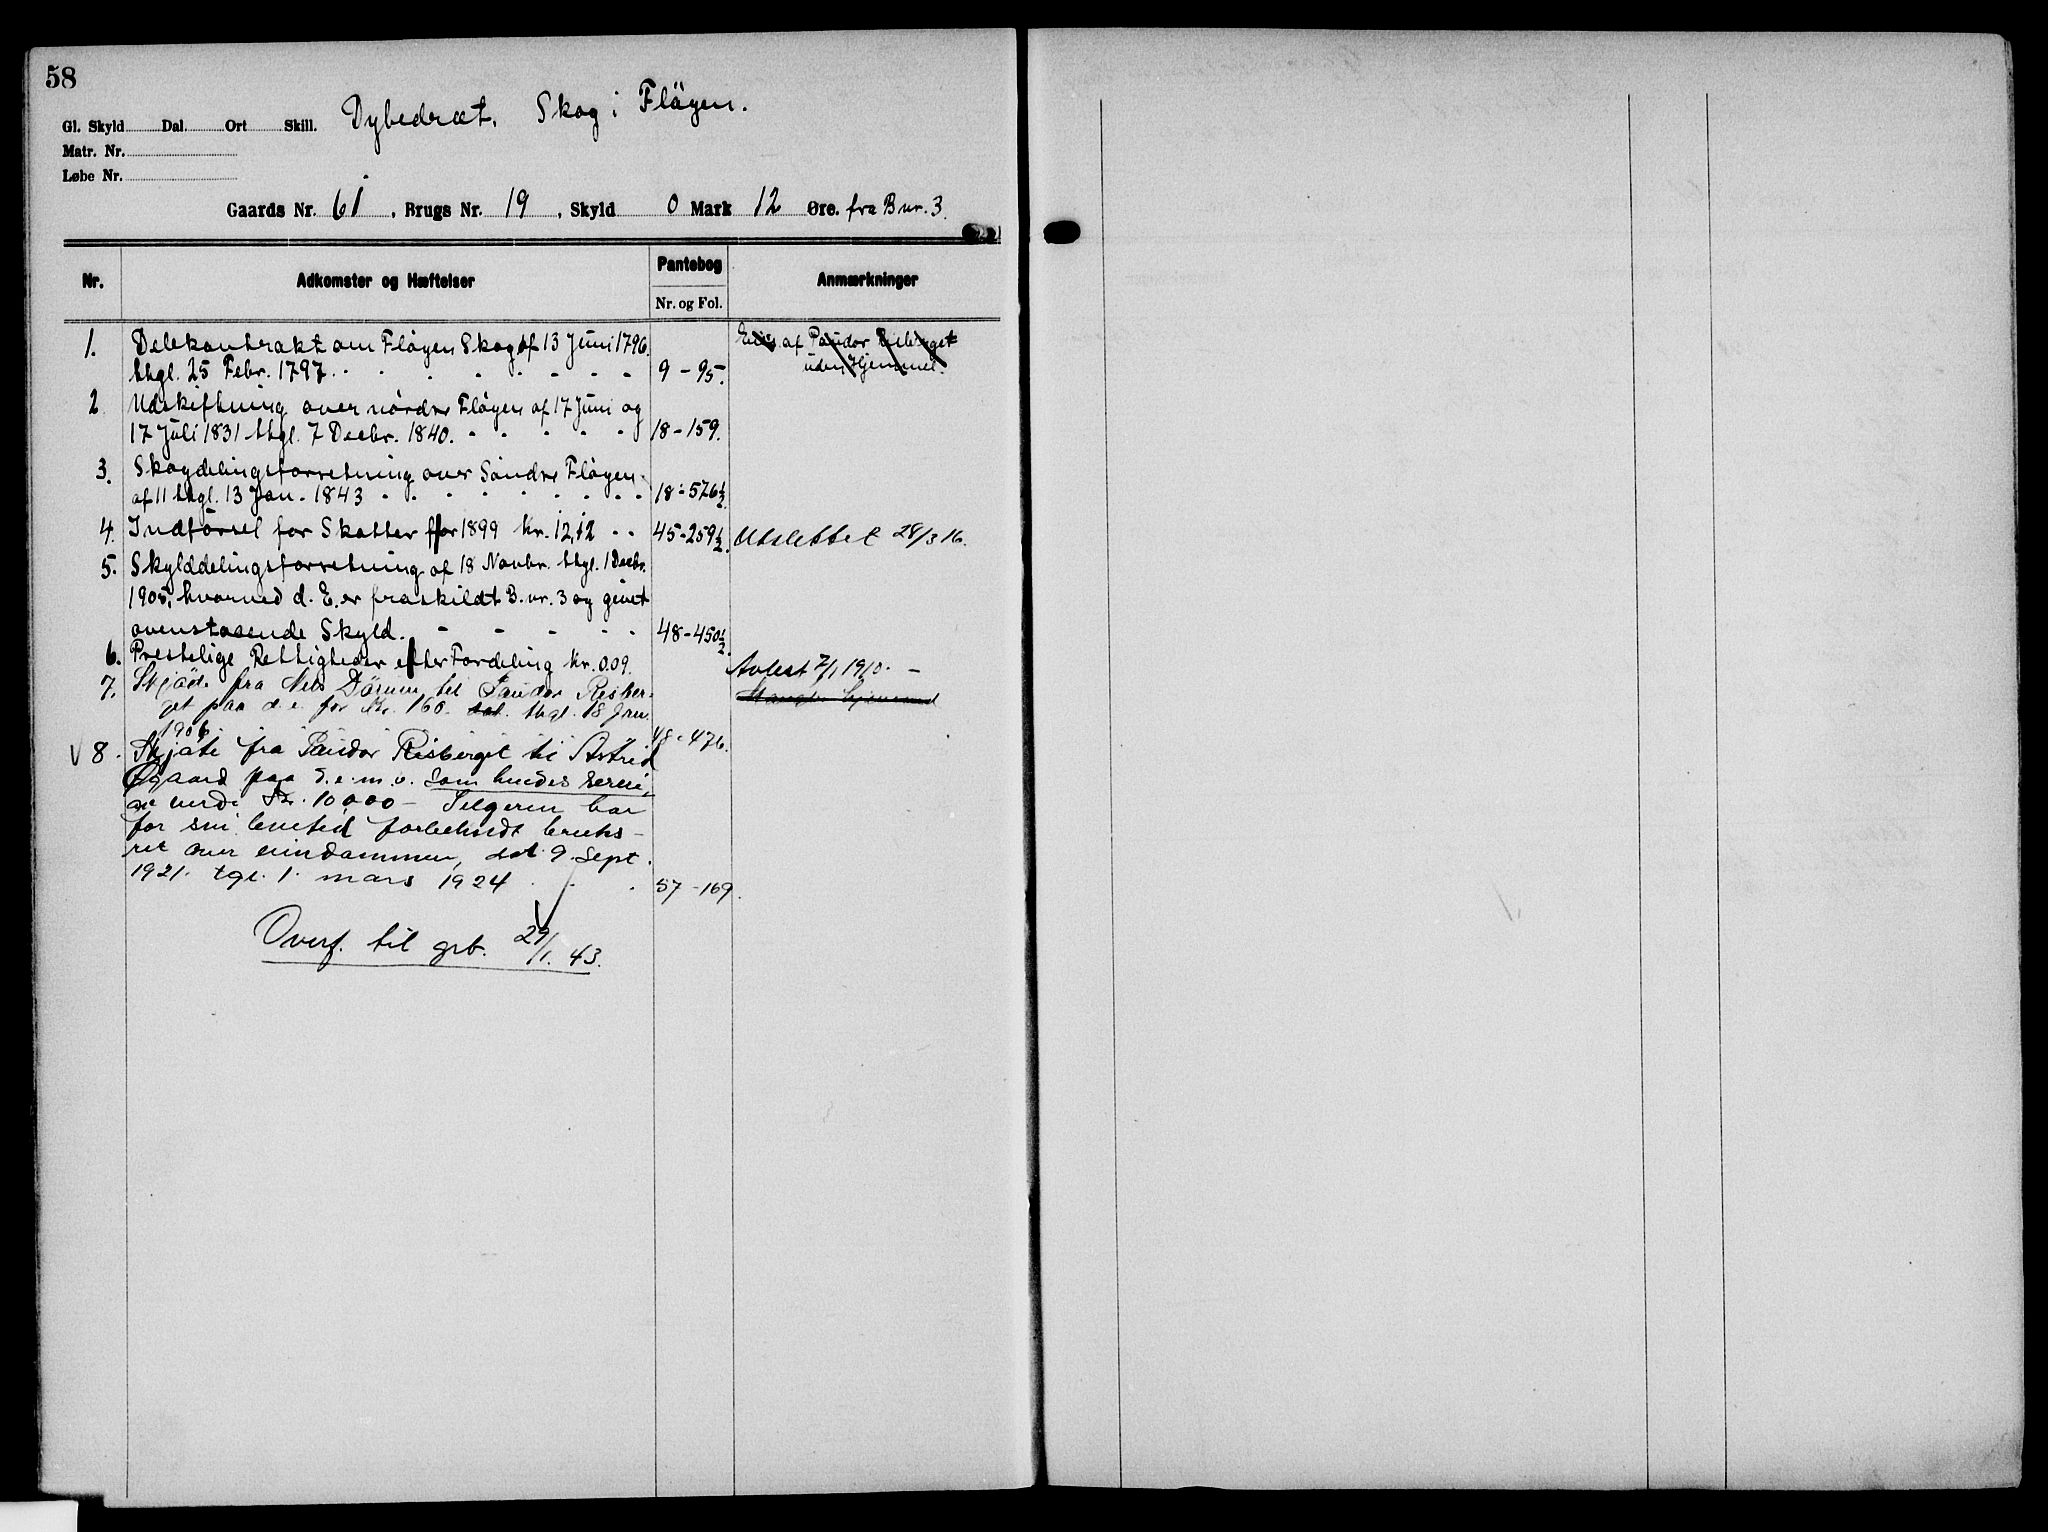 58
Dybedræt. Skog i Fløyen.
Gl. Skyld Dal. Ort Skill.
Matr. Nr.
Løbe Nr.
Gaards Nr. 61, Brugs Nr. 19, Skyld 0 Mark 12 Øre. fra Bnr. 3.
Nr. Adkomster og Hæftelser Pantebog Anmærkninger
Nr. og Fol.
1. Delekontrakt om Fløyen Skog af 13 Juni 1796. Eies af Paudor Risberget
thgl. 25 Febr. 1797. 9 - 95. uden Hjemmel.
2 Udskiftning over nørdre Fløyen af 17 Juni og
17 Juli 1831 thgl. 7 Decbr. 1840. 18 - 159.
3. Skogdelingsforretning over Søndre Fløyen
af 11 thgl. 13 Jan. 1843 18 - 576½
4. Indførsel for Skatter for 1899 kr. 12,12 45 - 259½. Utslettet 28/3 16.
5. Skylddelingsforretning af 18 Novbr. thgl. 1 Decbr.
1905, hvorved d. E. er fraskildt B. nr. 3 og givet
ovenstaaende Skyld. 48 - 450½.
6. Prestelige Rettigheder efter Fordeling kr. 0.09. Avløst 7/1 1910. -
7. Skjøde fra Nels Dørum til Paudor Risber- Mangler hjemmel
get paa d. e. for Kr. 160 dat. thgl. 18 Jan.
1906 48 - 476.
V 8. Skjøte fra Paudor Risberget til Astrid
Øgaard paa d. e. m. v. som hendes særei,
av verdi Kr. 10,000 - Selgeren har
for sin levetid forbeholdt bruks-
ret over eiendommen, dat 9. Sept.
1921. tgl. 1. mars 1924 57 - 169.
Overf. til grb. 29/1. 43.